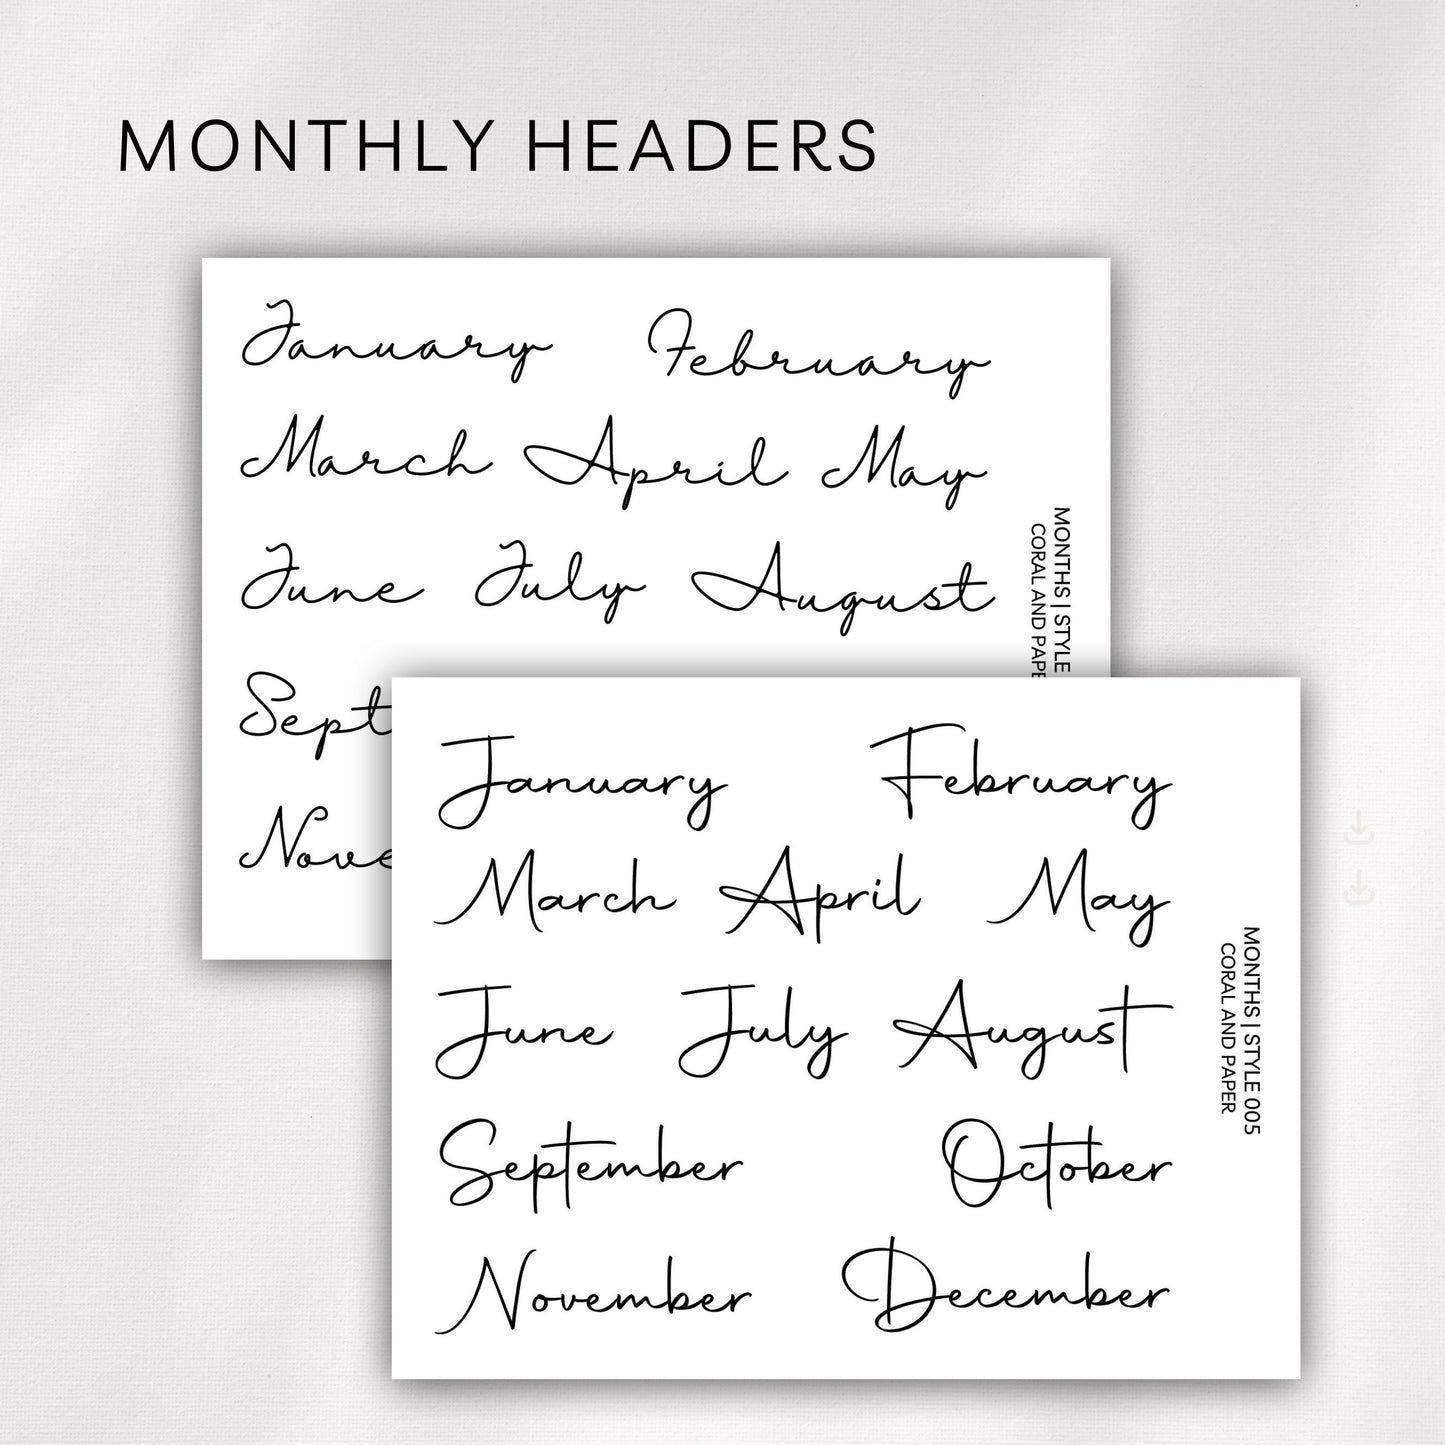 MONTHLY HEADERS
January February
March April May
June July August
Sept
Nove
MONTHS | STYLE
CORAL AND PAPE
January February
March April May
June July August
September October
November December
MONTHS | STYLE 005
CORAL AND PAPER